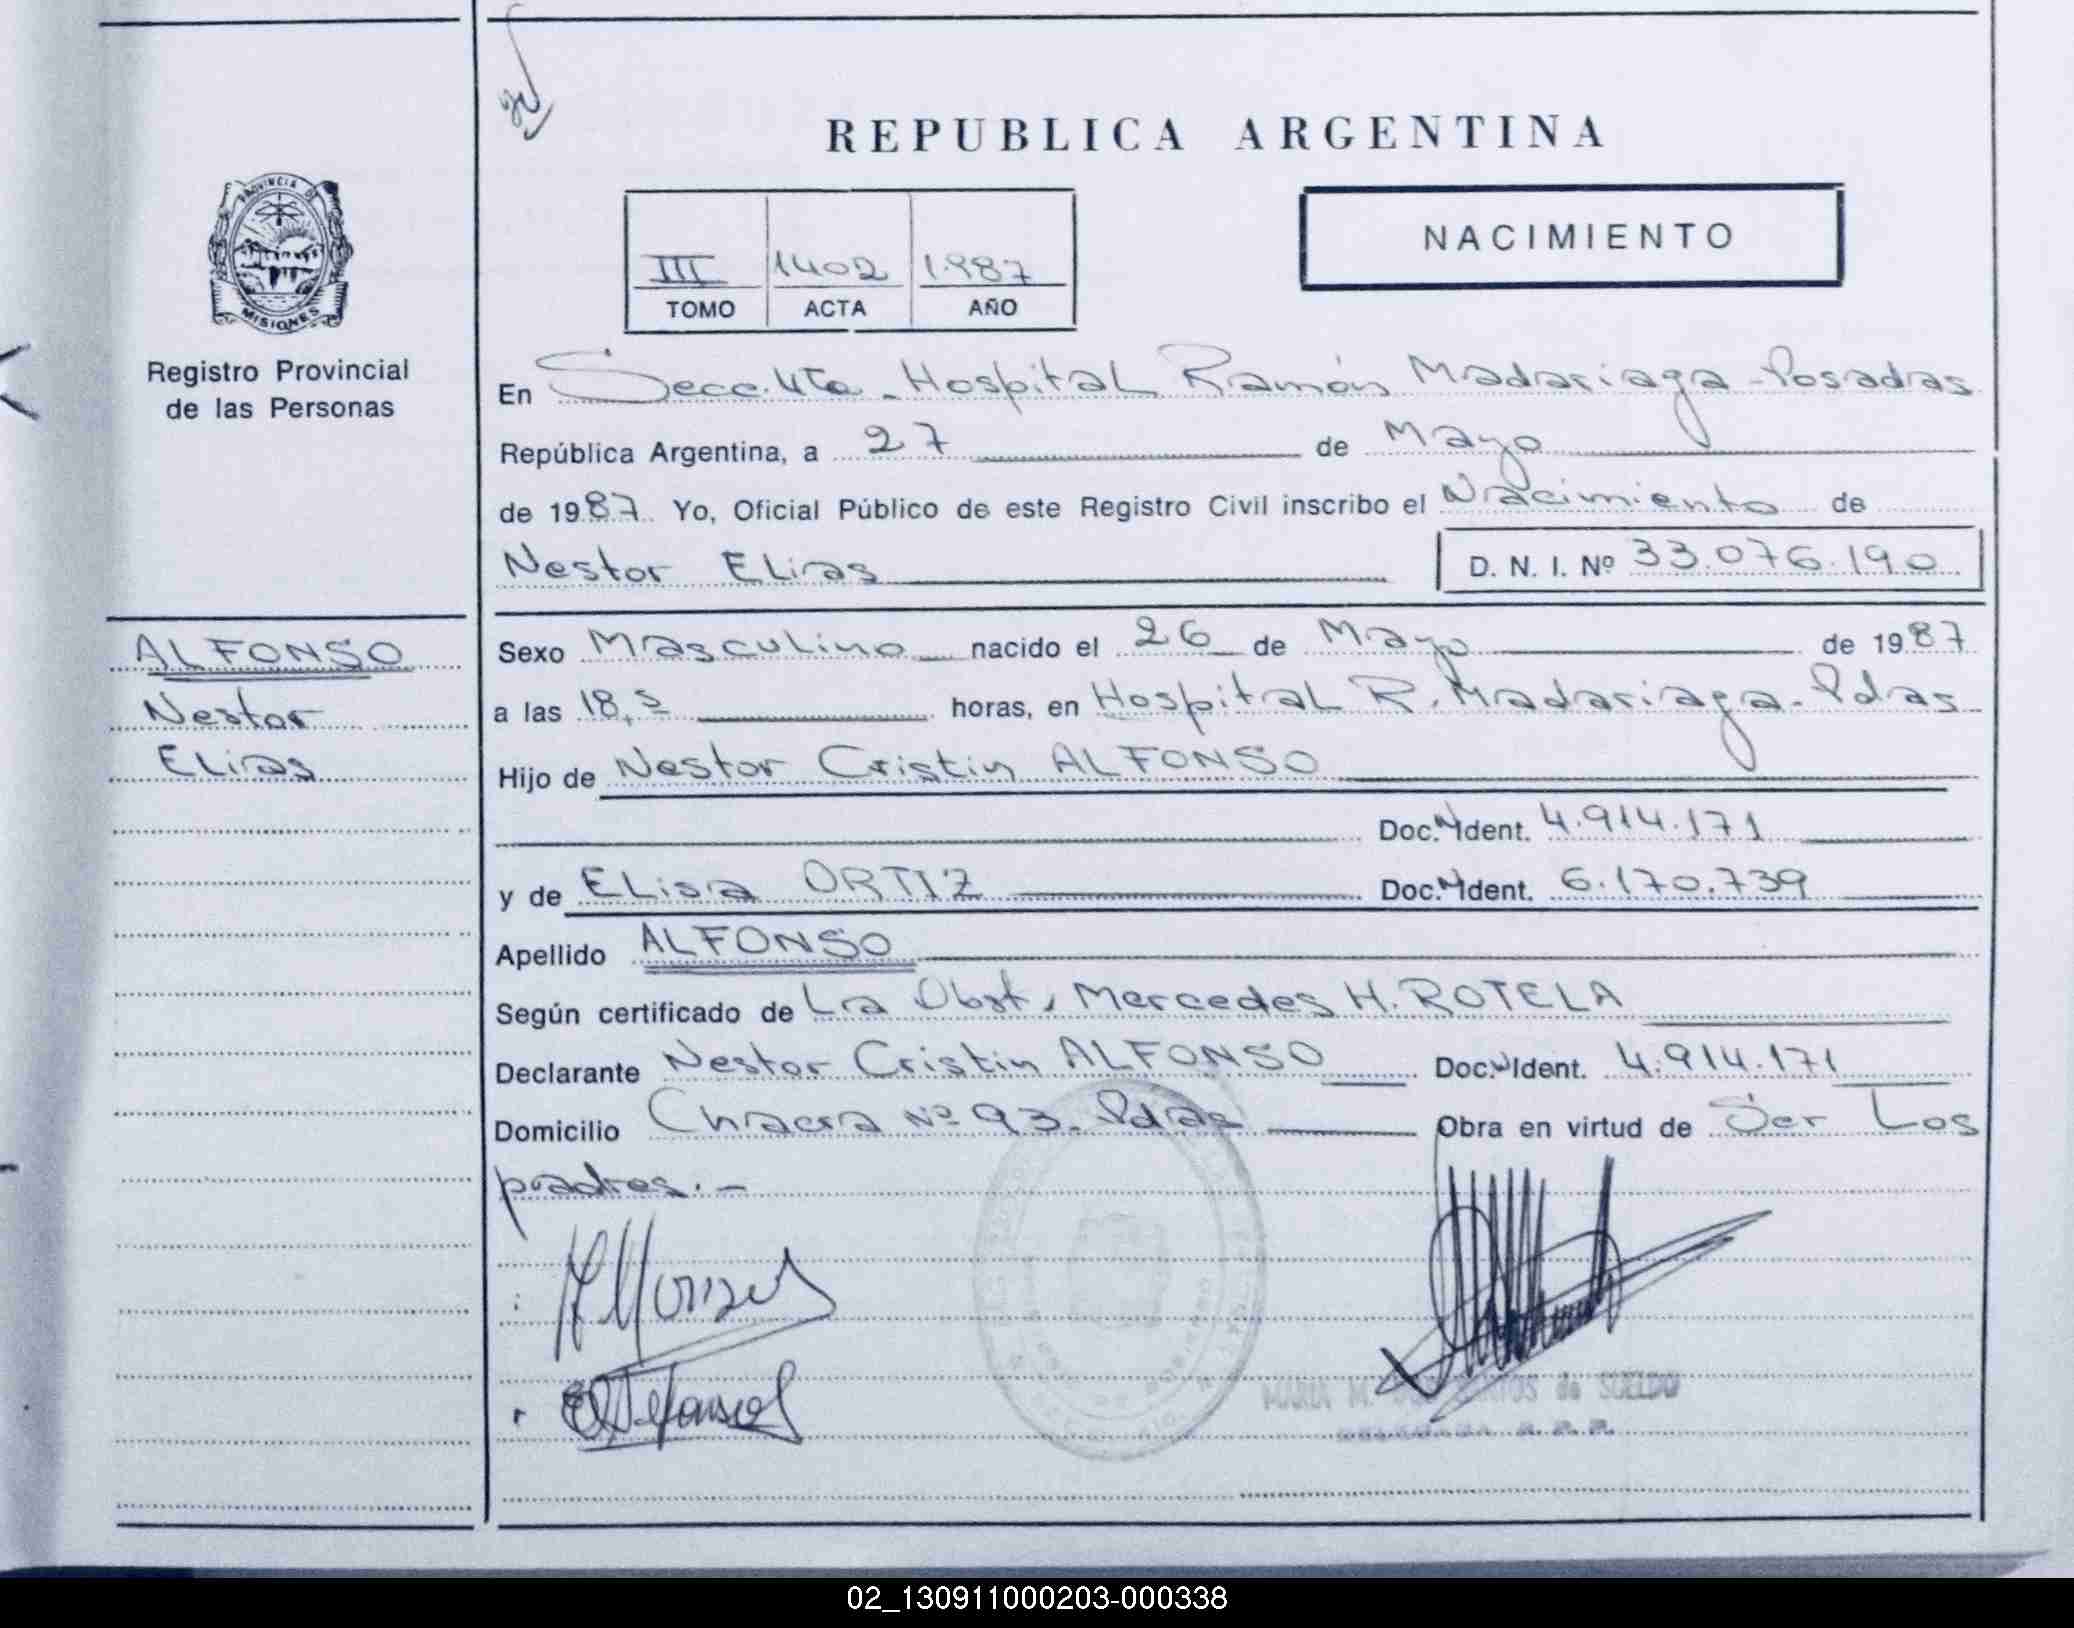 REPUBLICA ARGENTINA
NACIMIENTO
III 1402 1.987
TOMO ACTA AÑO
PROVINCIA DE
MISIONES
Registro Provincial
de las Personas
En Secc. 4ta. Hospital Ramón Madariaga - Posadas
República Argentina, a 27 de Mayo
de 1987. Yo, Oficial Público de este Registro Civil inscribo el Nacimiento de
Nestor Elias D. N. I. Nº 33.076.190
ALFONSO
Nestor
Elias
Sexo Masculino nacido el 26 de Mayo de 1987
a las 18,5 horas, en Hospital R. Madariaga - Pdas
Hijo de Nestor Cristin ALFONSO
Doc. N Ident. 4.914.171
y de Elisa ORTIZ Doc. N Ident. 6.170.739
Apellido ALFONSO
Según certificado de La Obst, Mercedes H. ROTELA
Declarante Nestor Cristin ALFONSO Doc. N Ident. 4.914.171
Domicilio Chacra Nº 93. Pdas Obra en virtud de Ser Los
padres. -
MARIA M. de SUELDO
02_130911000203-000338